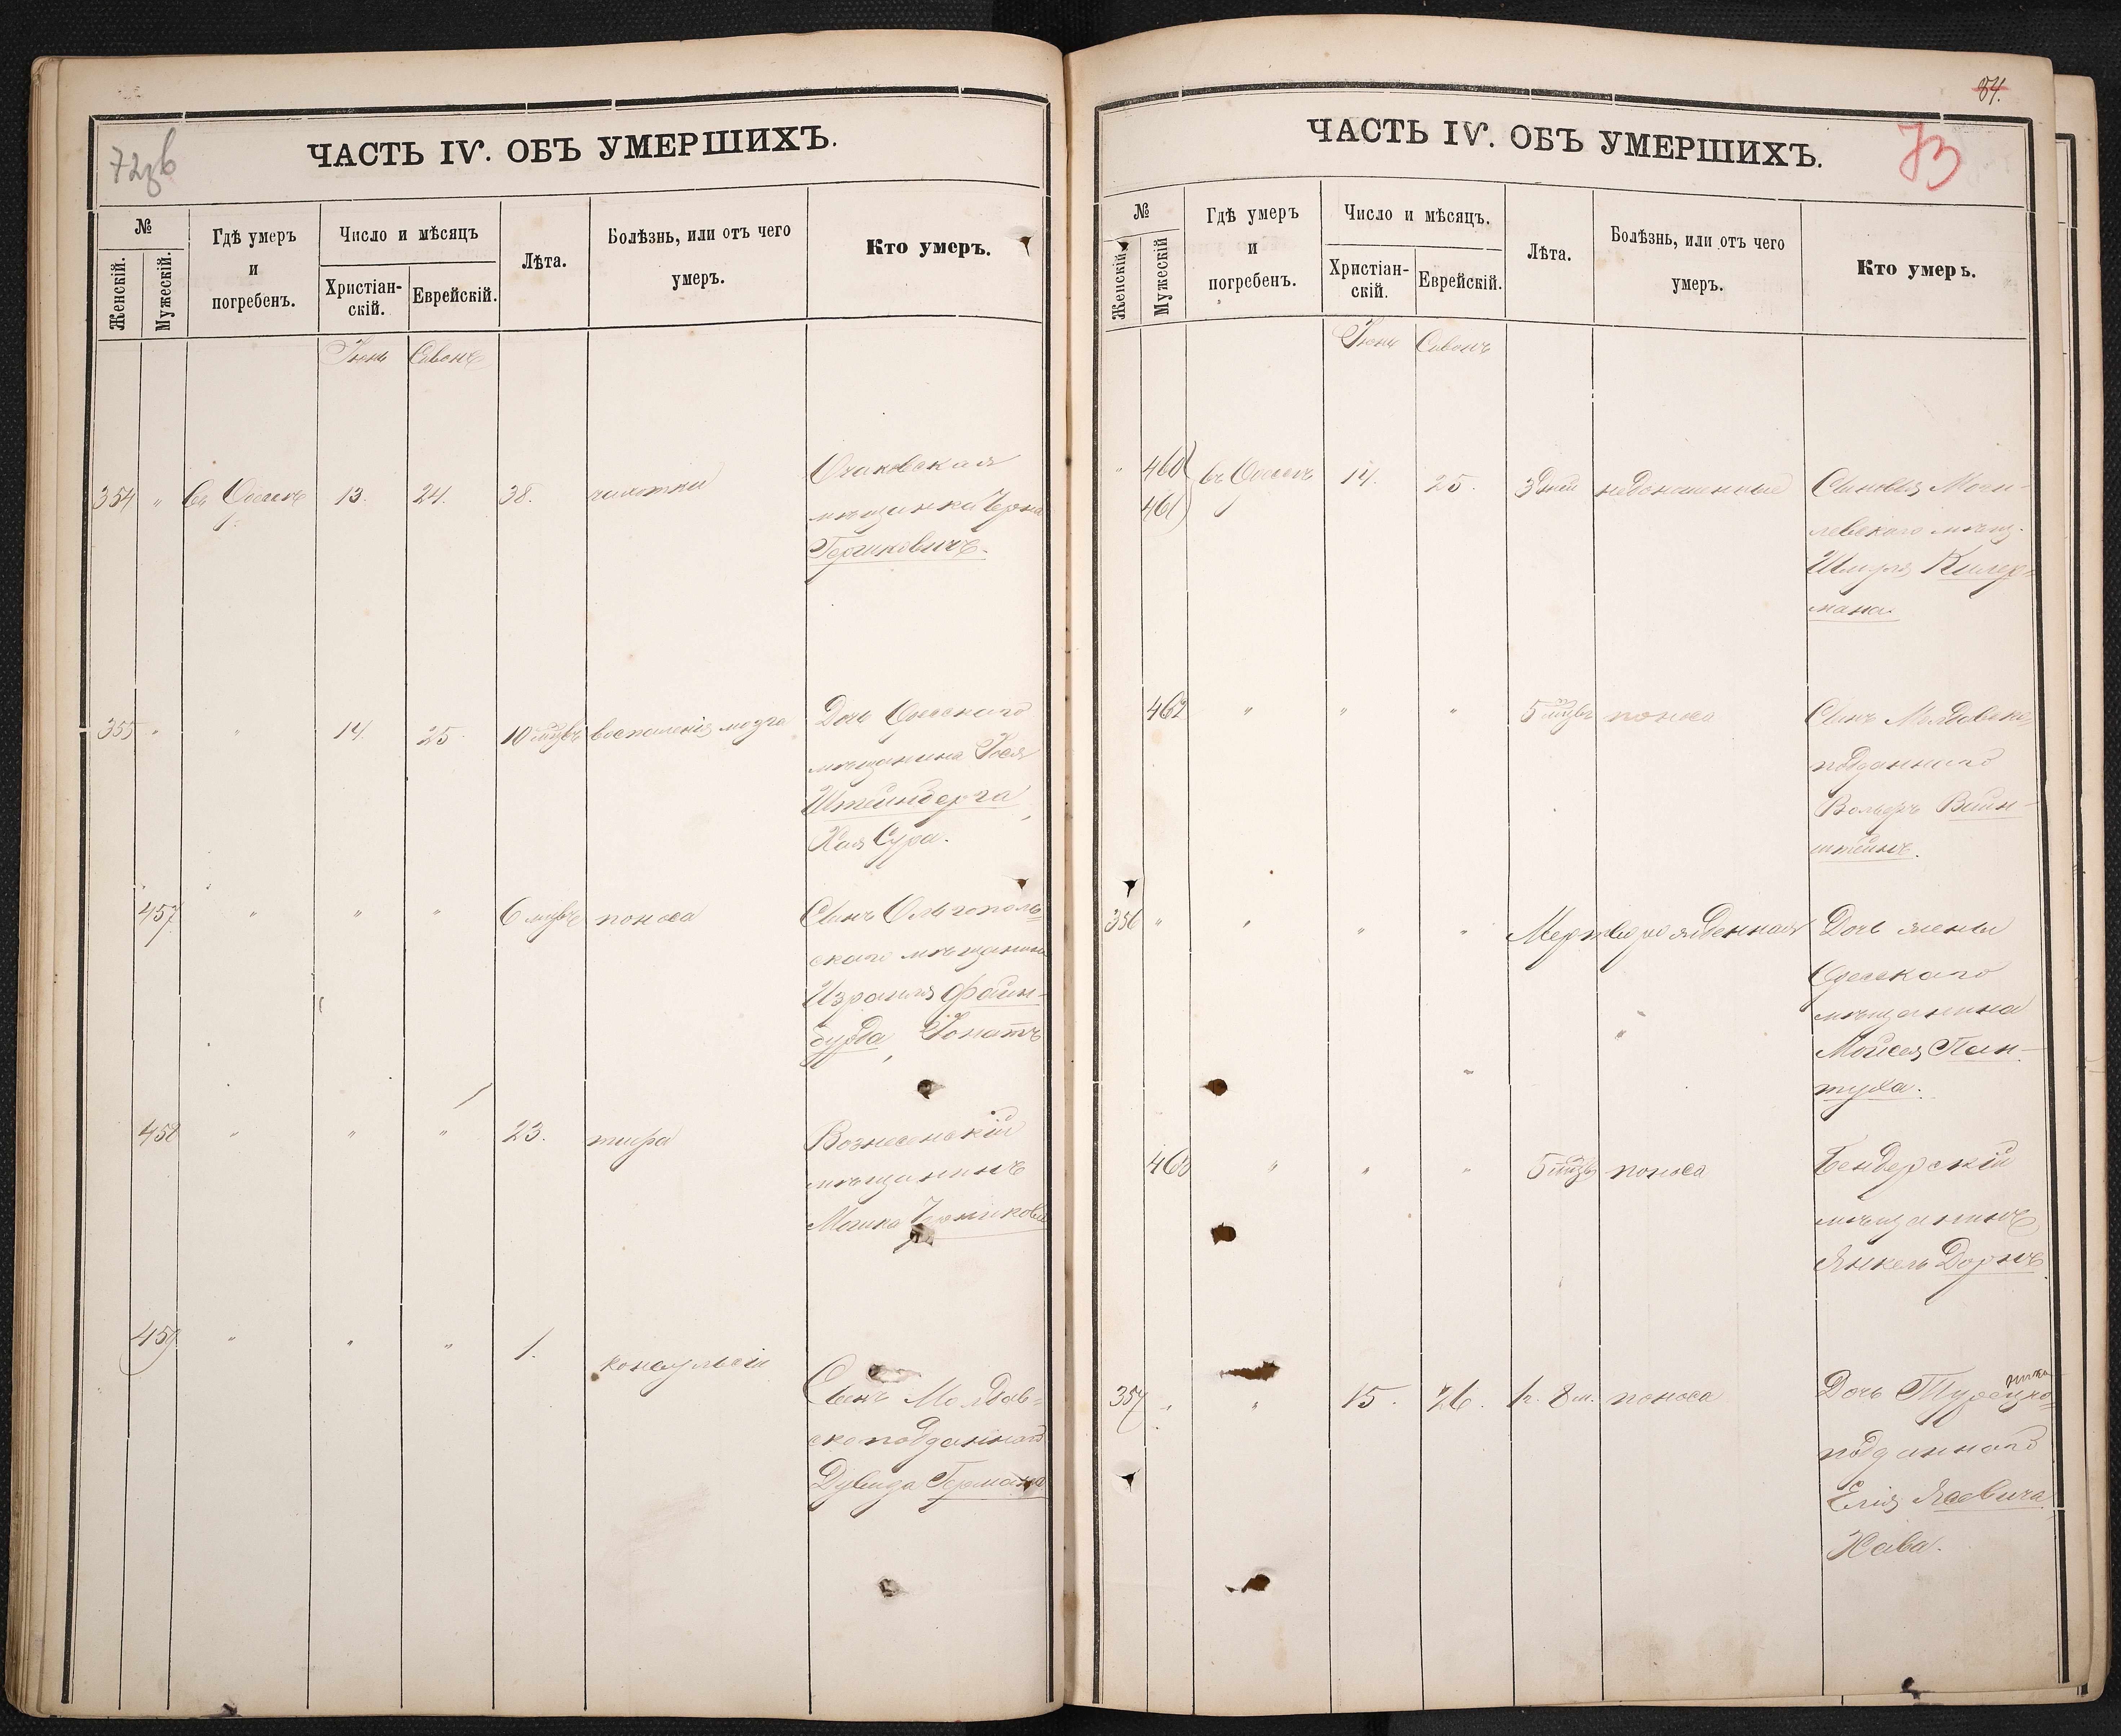 72зв
ЧАСТЬ IV. ОБЪ УМЕРШИХЪ.
№
Женскій.
Мужескій.
Гдѣ умеръ
и
погребенъ.
Число и мѣсяцъ
Христіан-
скій.
Еврейскій.
Лѣта.
Болѣзнь, или отъ чего
умеръ.
Кто умеръ.
Іюнь Сивонъ
354 " въ Одессѣ 13. 24. 38. чахотки
Очаковская
мѣщанка Черна
Гершковичъ.
355 " " 14. 25. 10 мцвъ воспаленія мозга
Дочь Одесскаго
мѣщанина Іося
Штейнберга,
Хая Сура.
457 " " " 6 мцвъ поноса
Сынъ Ольгополь-
скаго мѣщанина
Израиля Файн-
бурда, Іонатъ
458 " " " 23. тифа
Вознесенскій
мѣщанинъ
Мошко
459 " " " 1. конвульсіи
Сынъ Молдав-
скоподданнаго
Дувида Германа
34.
73
ЧАСТЬ IV. ОБЪ УМЕРШИХЪ.
№
Женскій.
Мужескій
Гдѣ умеръ
и
погребенъ.
Число и мѣсяцъ.
Христіан-
скій.
Еврейскій.
Лѣта.
Болѣзнь, или отъ чего
умеръ.
Кто умеръ.
Іюнь Сивонъ
" 460
461
въ Одессѣ 14. 25. 3 дней недоношенные
Сыновья Моги-
левскаго мѣщ.
Шмуля Килер-
мана.
462 " " " 5 мцвъ поноса
Сынъ Молдавско-
подданнаго
Вольфъ Вайн-
штейнъ.
356 " " " " Мертворожденная
Дочь жены
Одесскаго
мѣщанина
Мойсея Пан-
туха.
463 " " " 5 мцвъ поноса
Бендерскій
мѣщанинъ
Янкель Дорнъ.
357 " " 15. 26. 1г. 8м. поноса
Дочь Турецко-
подданнаго
Елія Ясевича,
Хава.